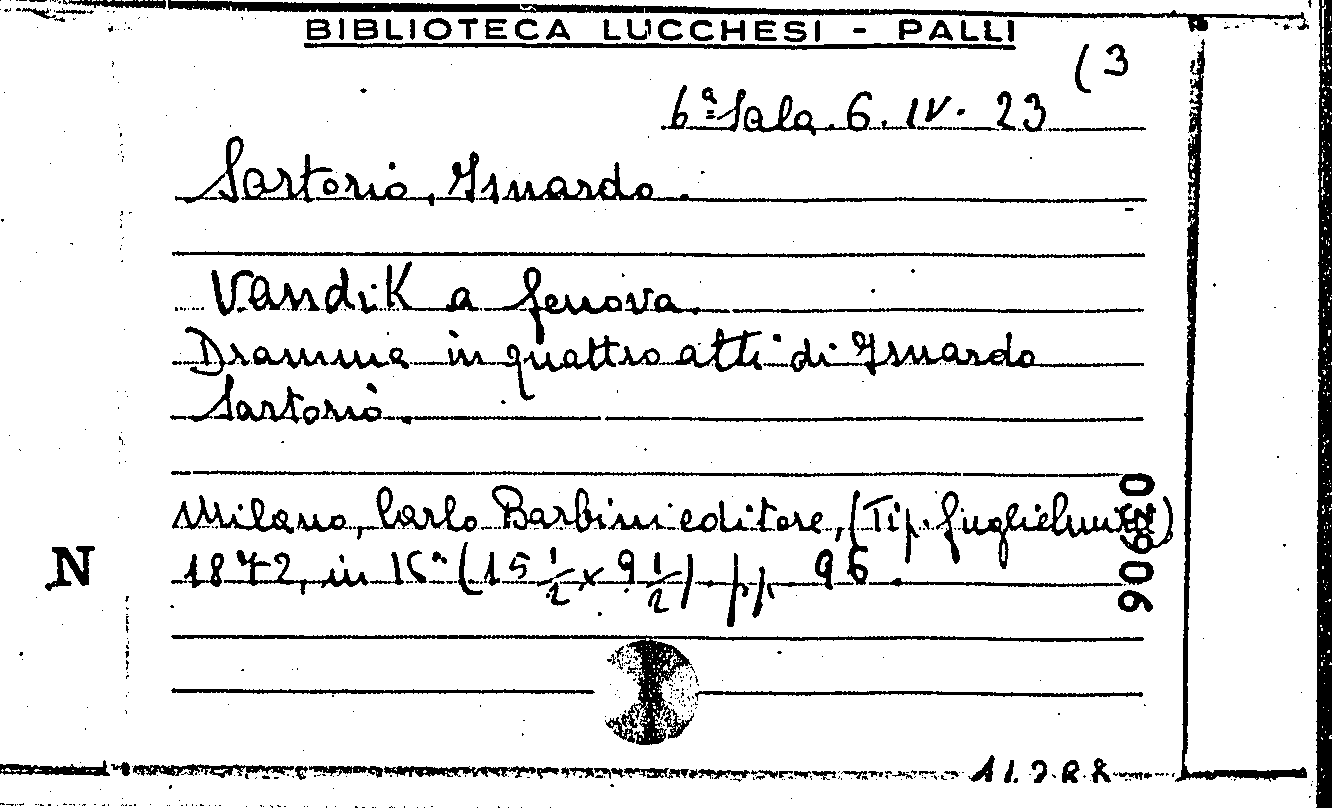 BIBLIOTECA LUCCHESI - PALLI
(3
6ª Sala. 6. IV. 23
Sartorio, Isnardo.
Vandik a Genova.
Dramma in quattro atti di Isnardo
Sartorio.
Milano, Carlo Barbini editore, (Tip. Guglielmini)
N
1872, in 16° (15 1/2 x 9 1/2). pp. 96.